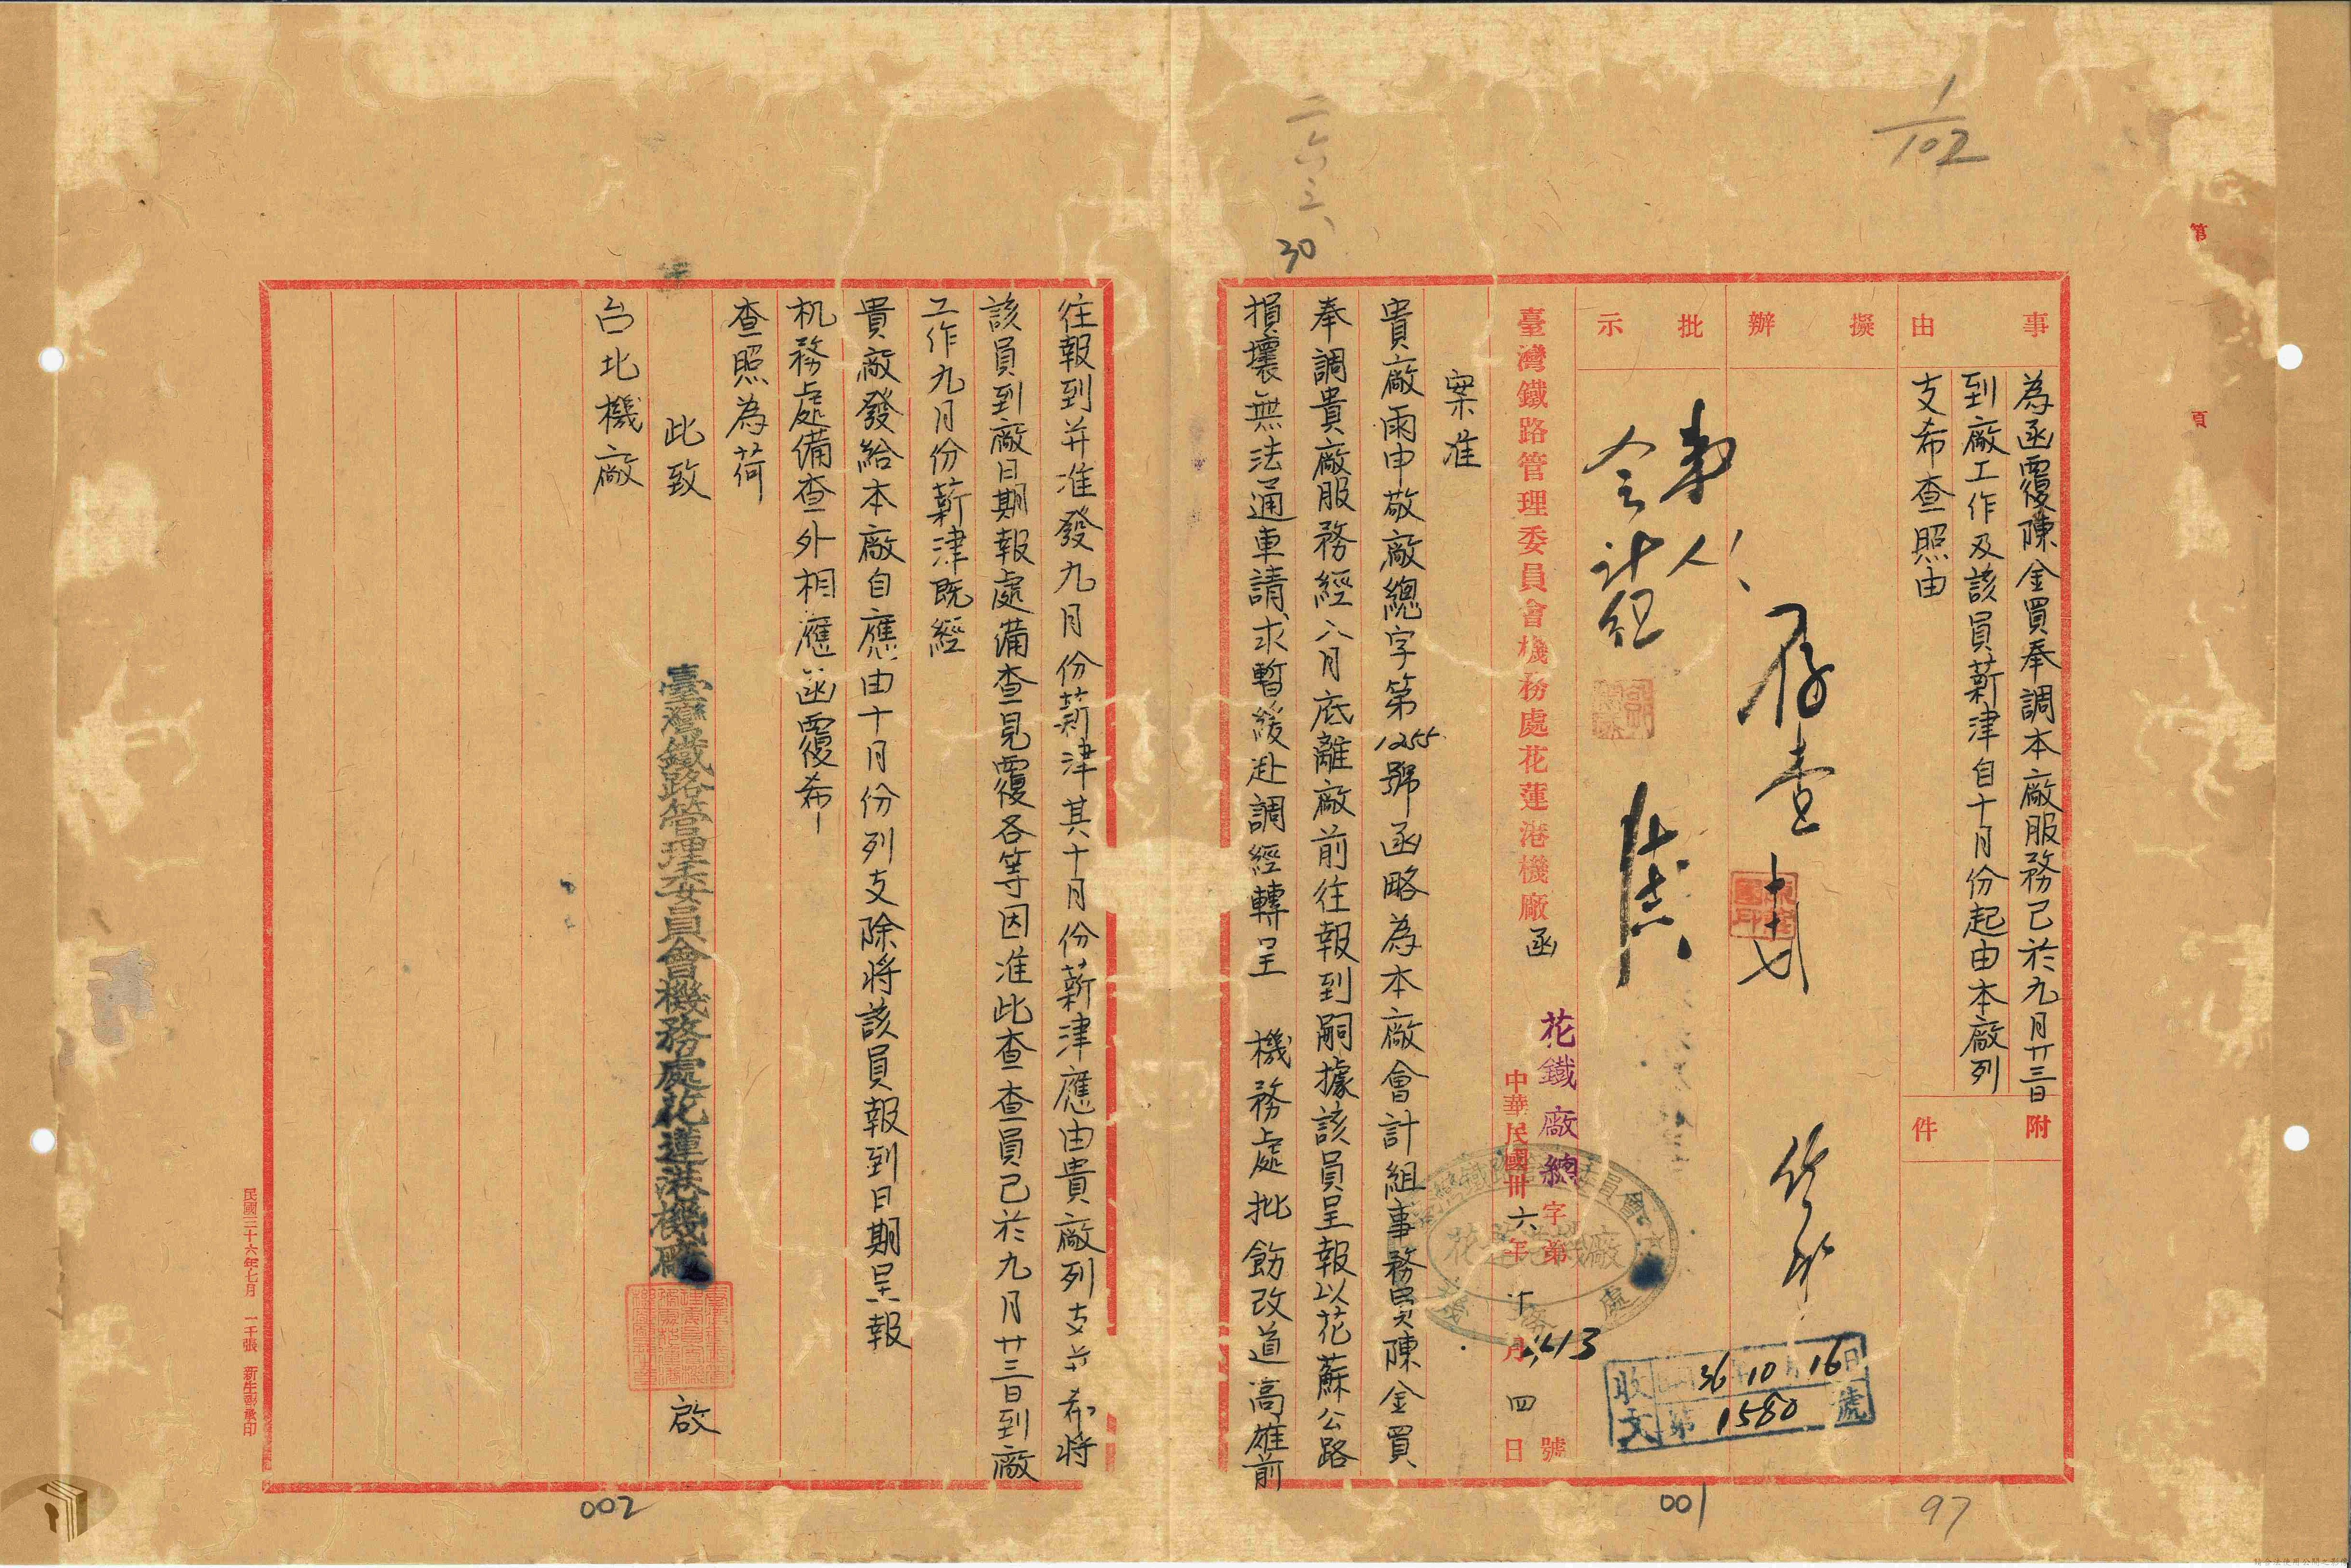 1/102
二六三、
30
第 頁
事由
為函覆陳金買奉調本廠服務已於九月廿三日
到廠工作及該員薪津自十月份起由本廠列
支希查照由
附件
擬辦
存查
批示
人事
會計組
臺灣鐵路管理委員會機務處花蓮港機廠函
花鐵廠總字第413號
中華民國卅六年十月四日
收文 36 10 16日
第1580號
案准
貴廠雨申敬廠總字第1255號函略為本廠會計組事務員陳金買
奉調貴廠服務經八月底離廠前往報到嗣據該員呈報以花蘇公路
損壞無法通車請求暫緩赴調經轉呈 機務處批飭改道高雄前
往報到并准發九月份薪津其十月份薪津應由貴廠列支并希將
該員到廠日期報處備查見覆各等因准此查查員已於九月廿三日到廠
工作九月份薪津既經
貴廠發給本廠自應由十月份列支除將該員報到日期呈報
机務處備查外相應函覆希
查照為荷
此致
台北機廠
臺灣鐵路管理委員會機務處花蓮港機廠
啟
民國三十六年七月 一千張 新生彭承印
002
001
97